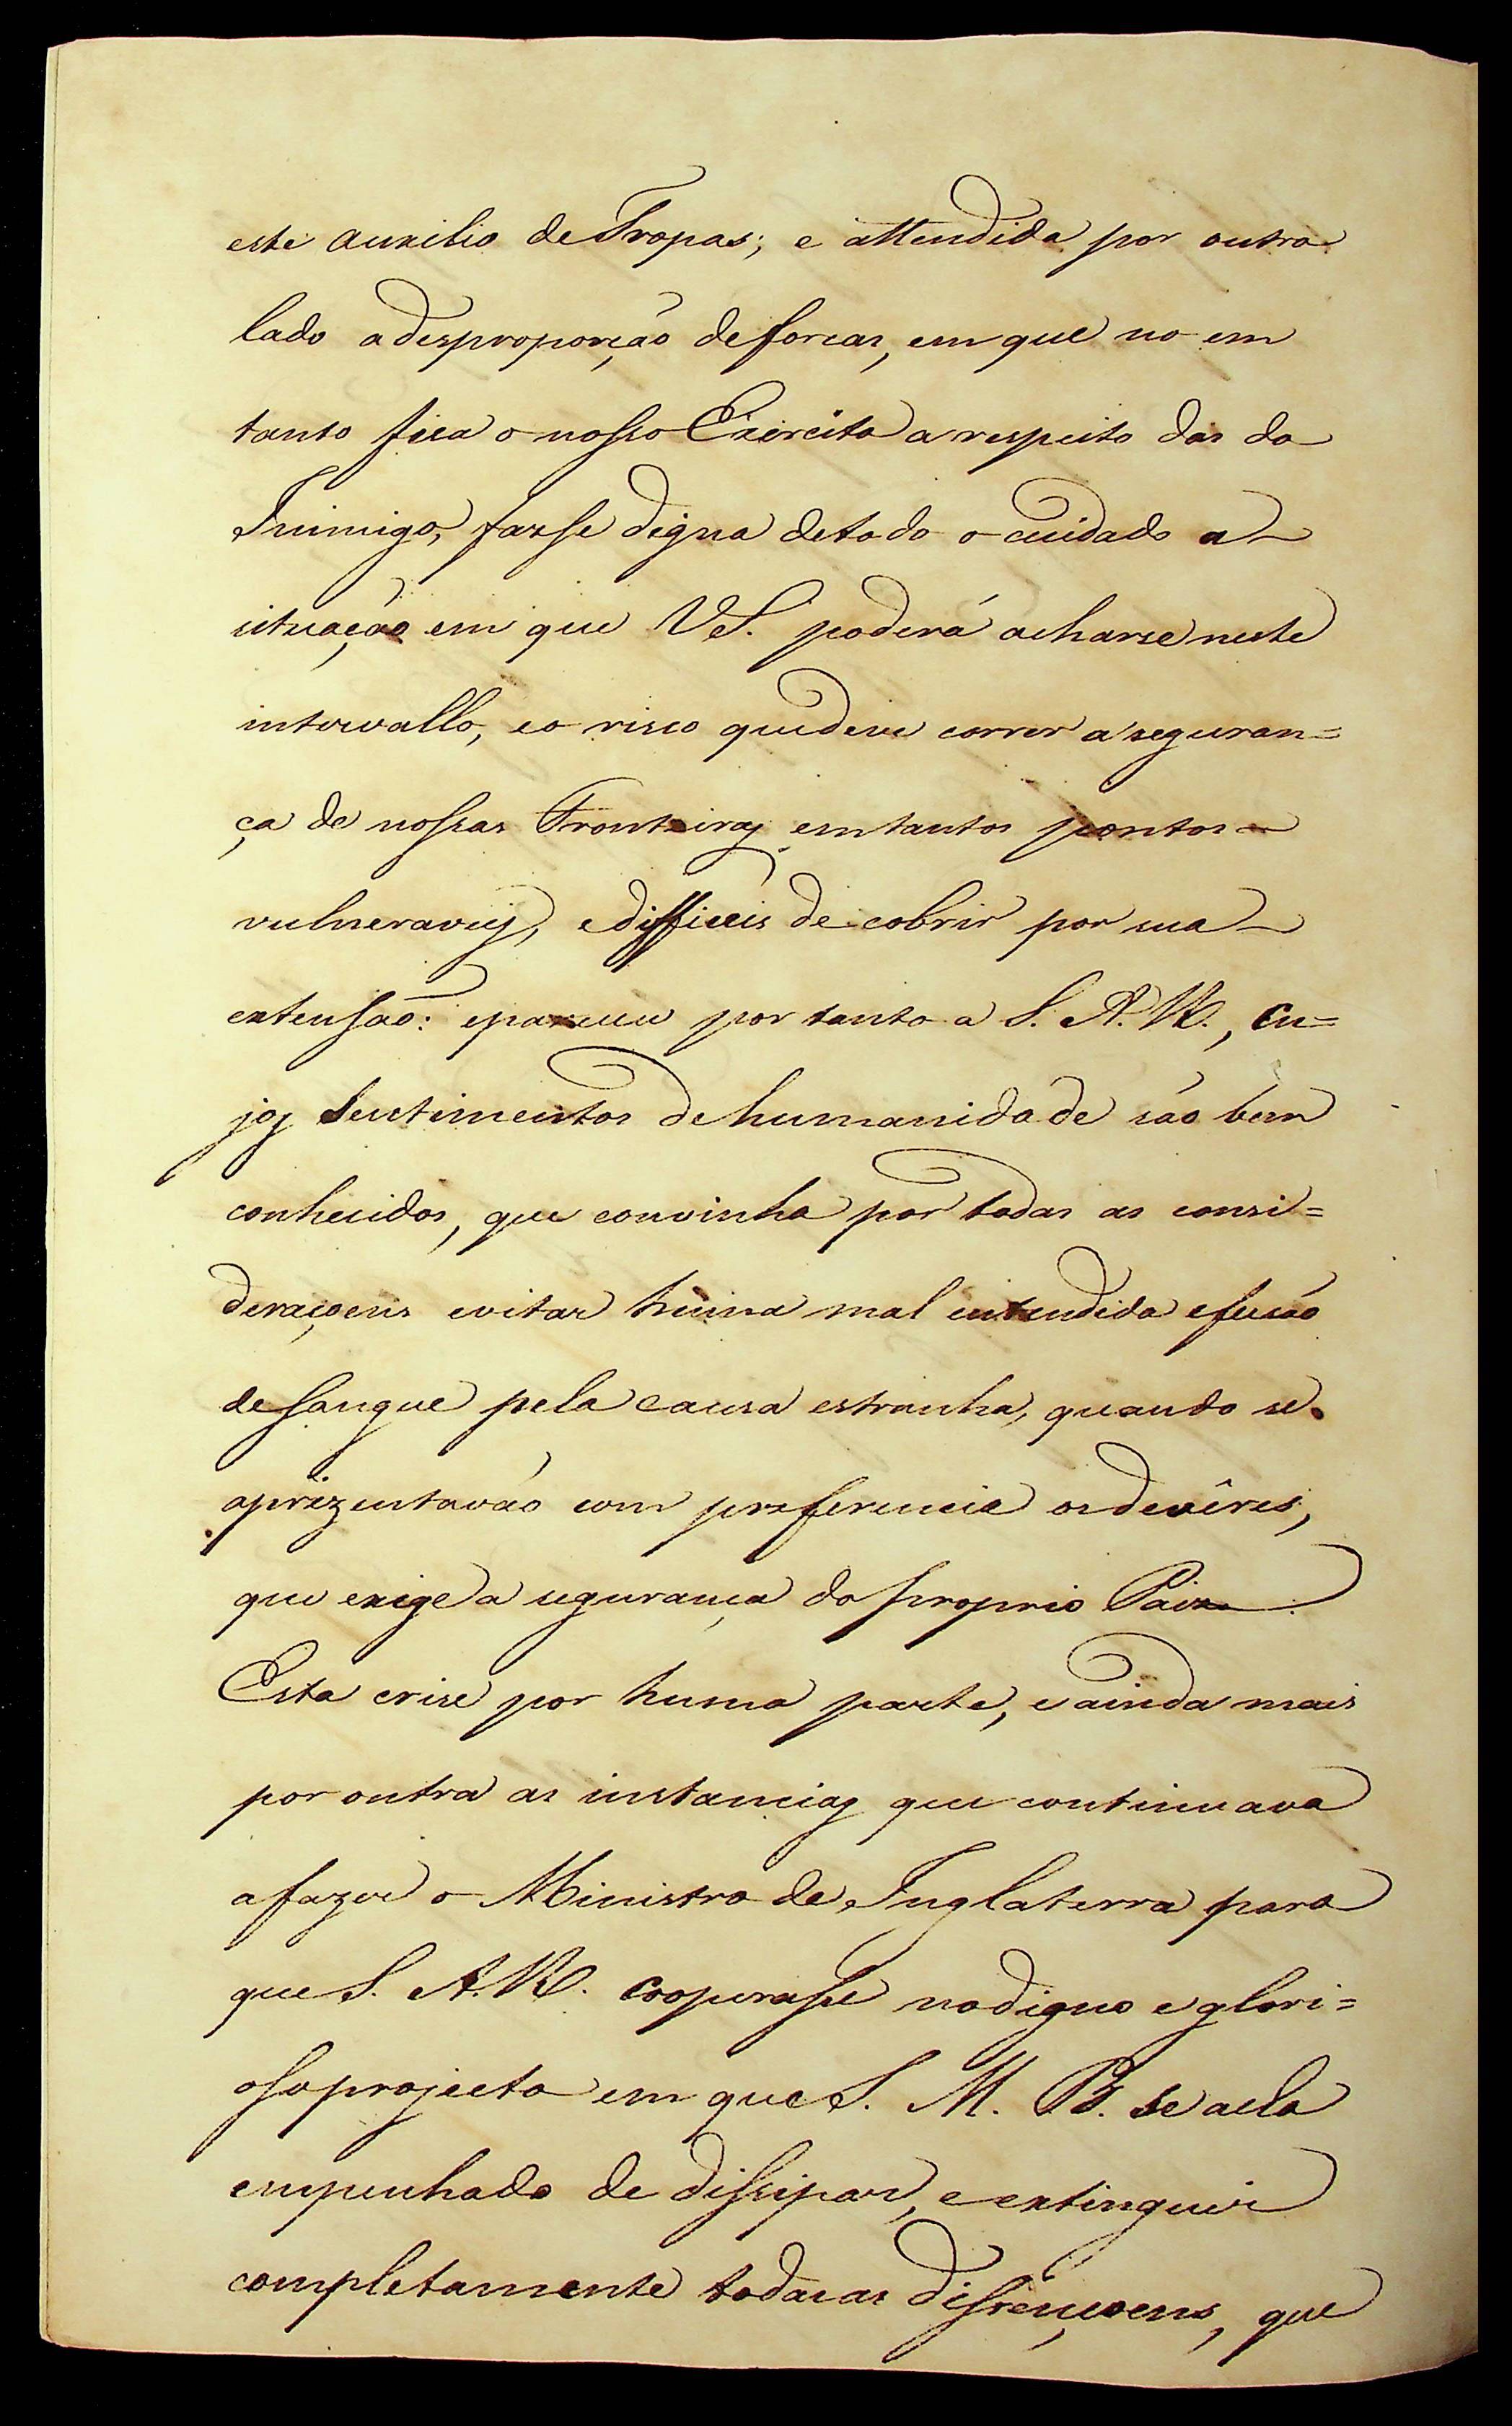 este auxilio de Tropas; e attendida por outro
lado a desproporção de forcas, em que no em
tanto fica o nosso Exército a respeito das do
Inimigo, fasse digna de todo o cuidado a
situação em que VS. poderá acharse neste
intervallo, e o risco que deve correr a seguran=
ça de nossas Fronteiras em tantos pontos
vulneraveis, e difficeis de cobrir por sua
extensão: e pareceu por tanto a S. A. R., cu=
jos sentimentos de humanidade são bem
conhecidos, que convinha por todas as consi=
deraçoens evitar huma mal entendida efusão
de sangue pela causa estranha, quando se
aprezentavão com preferencia os devêres,
que exige a segurança do proprio Paiz.
Esta crise por huma parte, e ainda mais
por outra as instancias que continuava
a fazer o Ministro de Inglaterra para
que S. A. R. cooperasse no digno e glori=
oso projecto em que S. M. B. se acha
empenhado de dissipar, e extinguir
completamente todas as dissençoens, que